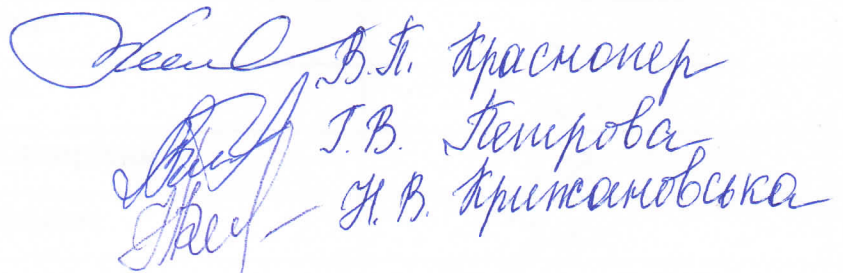 В.П. Краснопер
Г.В. Петрова
Н.В. Крижановська